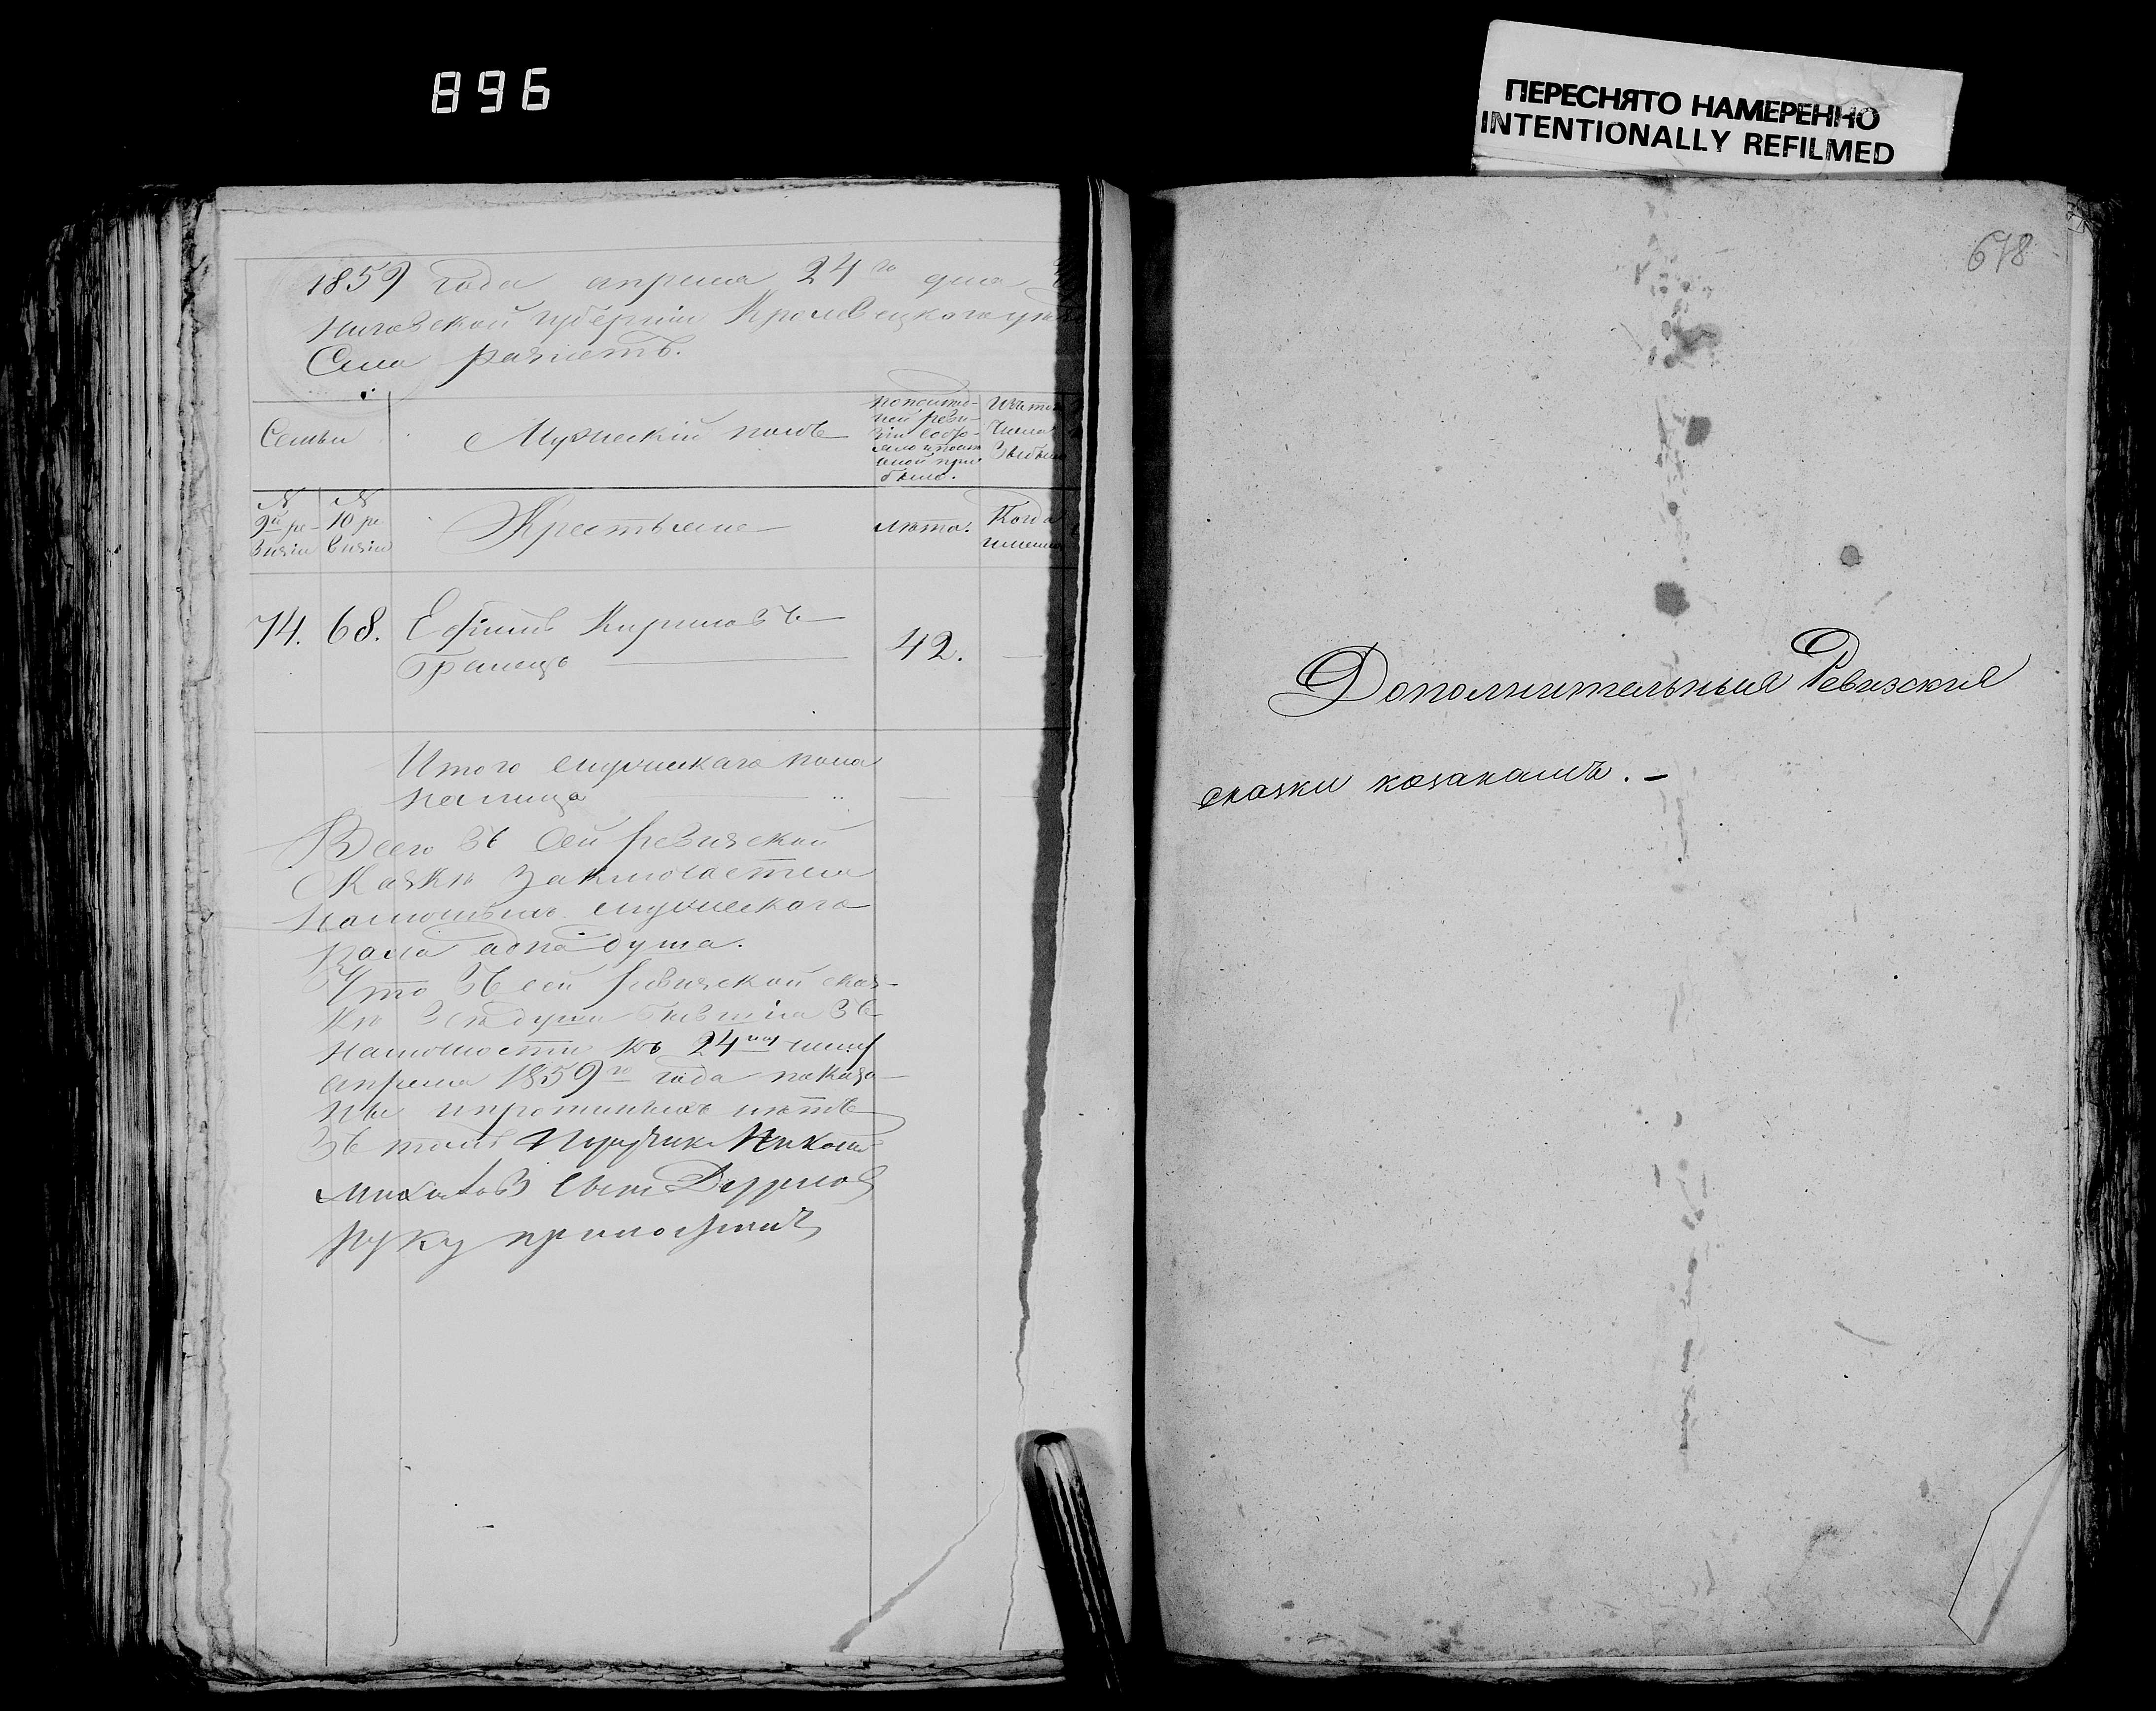 896
ПЕРЕСНЯТО НАМЕРЕННО
INTENTIONALLY REFILMED
1859 года апреля 24го дня
ниговской губернии Кролевецкого
Села
Семьи
Мужескій полъ
По последней ревизіи состояло и после оной прибыло.
Изъ того числа выбыло
№ 9й ревизіи
№ 10 ревизіи
Крестьяне
Лета.
Когда именно
74. 68. Ефимъ Кириловъ
42.
Итого мужескаго пола
на лицо
Всего въ сей ревизской
сказке заключается
наличныхъ мужескаго
пола одна душа.
Что въ сей ревизской сказ-
ке все души бывшіе въ
наличности къ 24му числу
апреля 1859го года показа-
ны и прописныхъ нетъ
въ томъ Поручикъ Николай
сынъ
руку приложилъ
678
Дополнительныя Ревизскія
сказки козакамъ. –